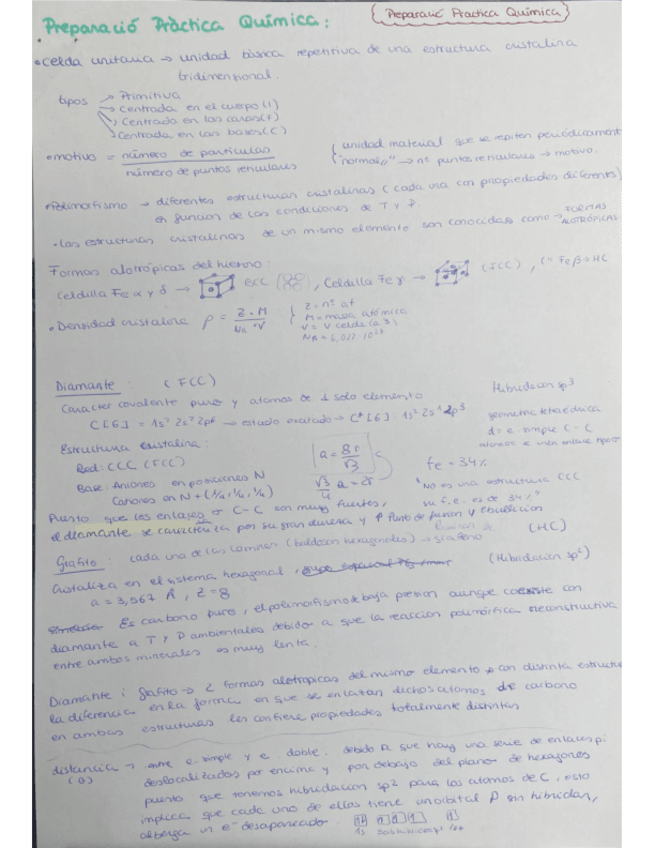 Preparació Pràctica Química:
Preparació Practica Química
• Celda unitaria → unidad básica repetitiva de una estructura cristalina
tridimensional.
tipos → Primitiva
→ Centrada en el cuerpo (I)
→ Centrada en las caras (F)
→ Centrada en las bases (C)
• motivo = número de partículas
número de puntos reticulares
unidad material que se repiten periódicamente
"normal" → nº puntos reticulares → motivo.
• Polimorfismo → diferentes estructuras cristalinas (cada una con propiedades diferentes)
en función de las condiciones de T y P.
• Las estructuras cristalinas de un mismo elemento son conocidas como → FORMAS
ALOTRÓPICAS
Formas alotrópicas del hierro:
Celdilla Fe α y δ → BCC , Celdilla Fe γ → (FCC) , Fe β → HC
• Densidad cristalina ρ = Z · M
NA · V
Z = nº at
M = masa atómica
V = V celda (a3)
NA = 6,022 · 10²³
Diamante: (FCC)
Hibridación sp3
Carácter covalente puro y átomos de 1 solo elemento
C [6] = 1s² 2s² 2p² → estado excitado → C* [6] 1s² 2s¹ 2p3
geometría tetraédrica
d = e. simple C - C
Estructura cristalina:
Red: CCC (FCC)
a = 8r
√3
fe = 34%
Base: Aniones en posiciones N
Cationes en N + (1/4, 1/4, 1/4)
√3 a = 2r
4
"No es una estructura CCC
su f.e. es de 34%"
Puesto que los enlaces σ C - C son muy fuertes,
el diamante se caracteriza por su gran dureza y ↑ Punto de fusión y ebullición
(HC)
Grafito: cada una de las láminas (baldosas hexagonales) → grafeno
(Hibridación sp²)
Cristaliza en el sistema hexagonal,
a = 3,567 Å, Z = 8
Es carbono puro, el polimorfismo de baja presión aunque coexiste con
diamante a T y P ambientales debido a que la reacción polimórfica reconstructiva
entre ambos minerales es muy lenta.
Diamante i grafito → 2 formas alotrópicas del mismo elemento, con distinta estructura
la diferencia en la forma en que se enlazan dichos átomos de carbono
en ambas estructuras les confiere propiedades totalmente distintas
distancia → entre e. simple y e. doble. debido a que hay una serie de enlaces pi
deslocalizados por encima y por debajo del plano de hexágonos
puesto que tenemos hibridación sp2 para los átomos de C, esto
implica que cada uno de ellos tiene un orbital p sin hibridar,
alberga un e⁻ desapareado.
1s